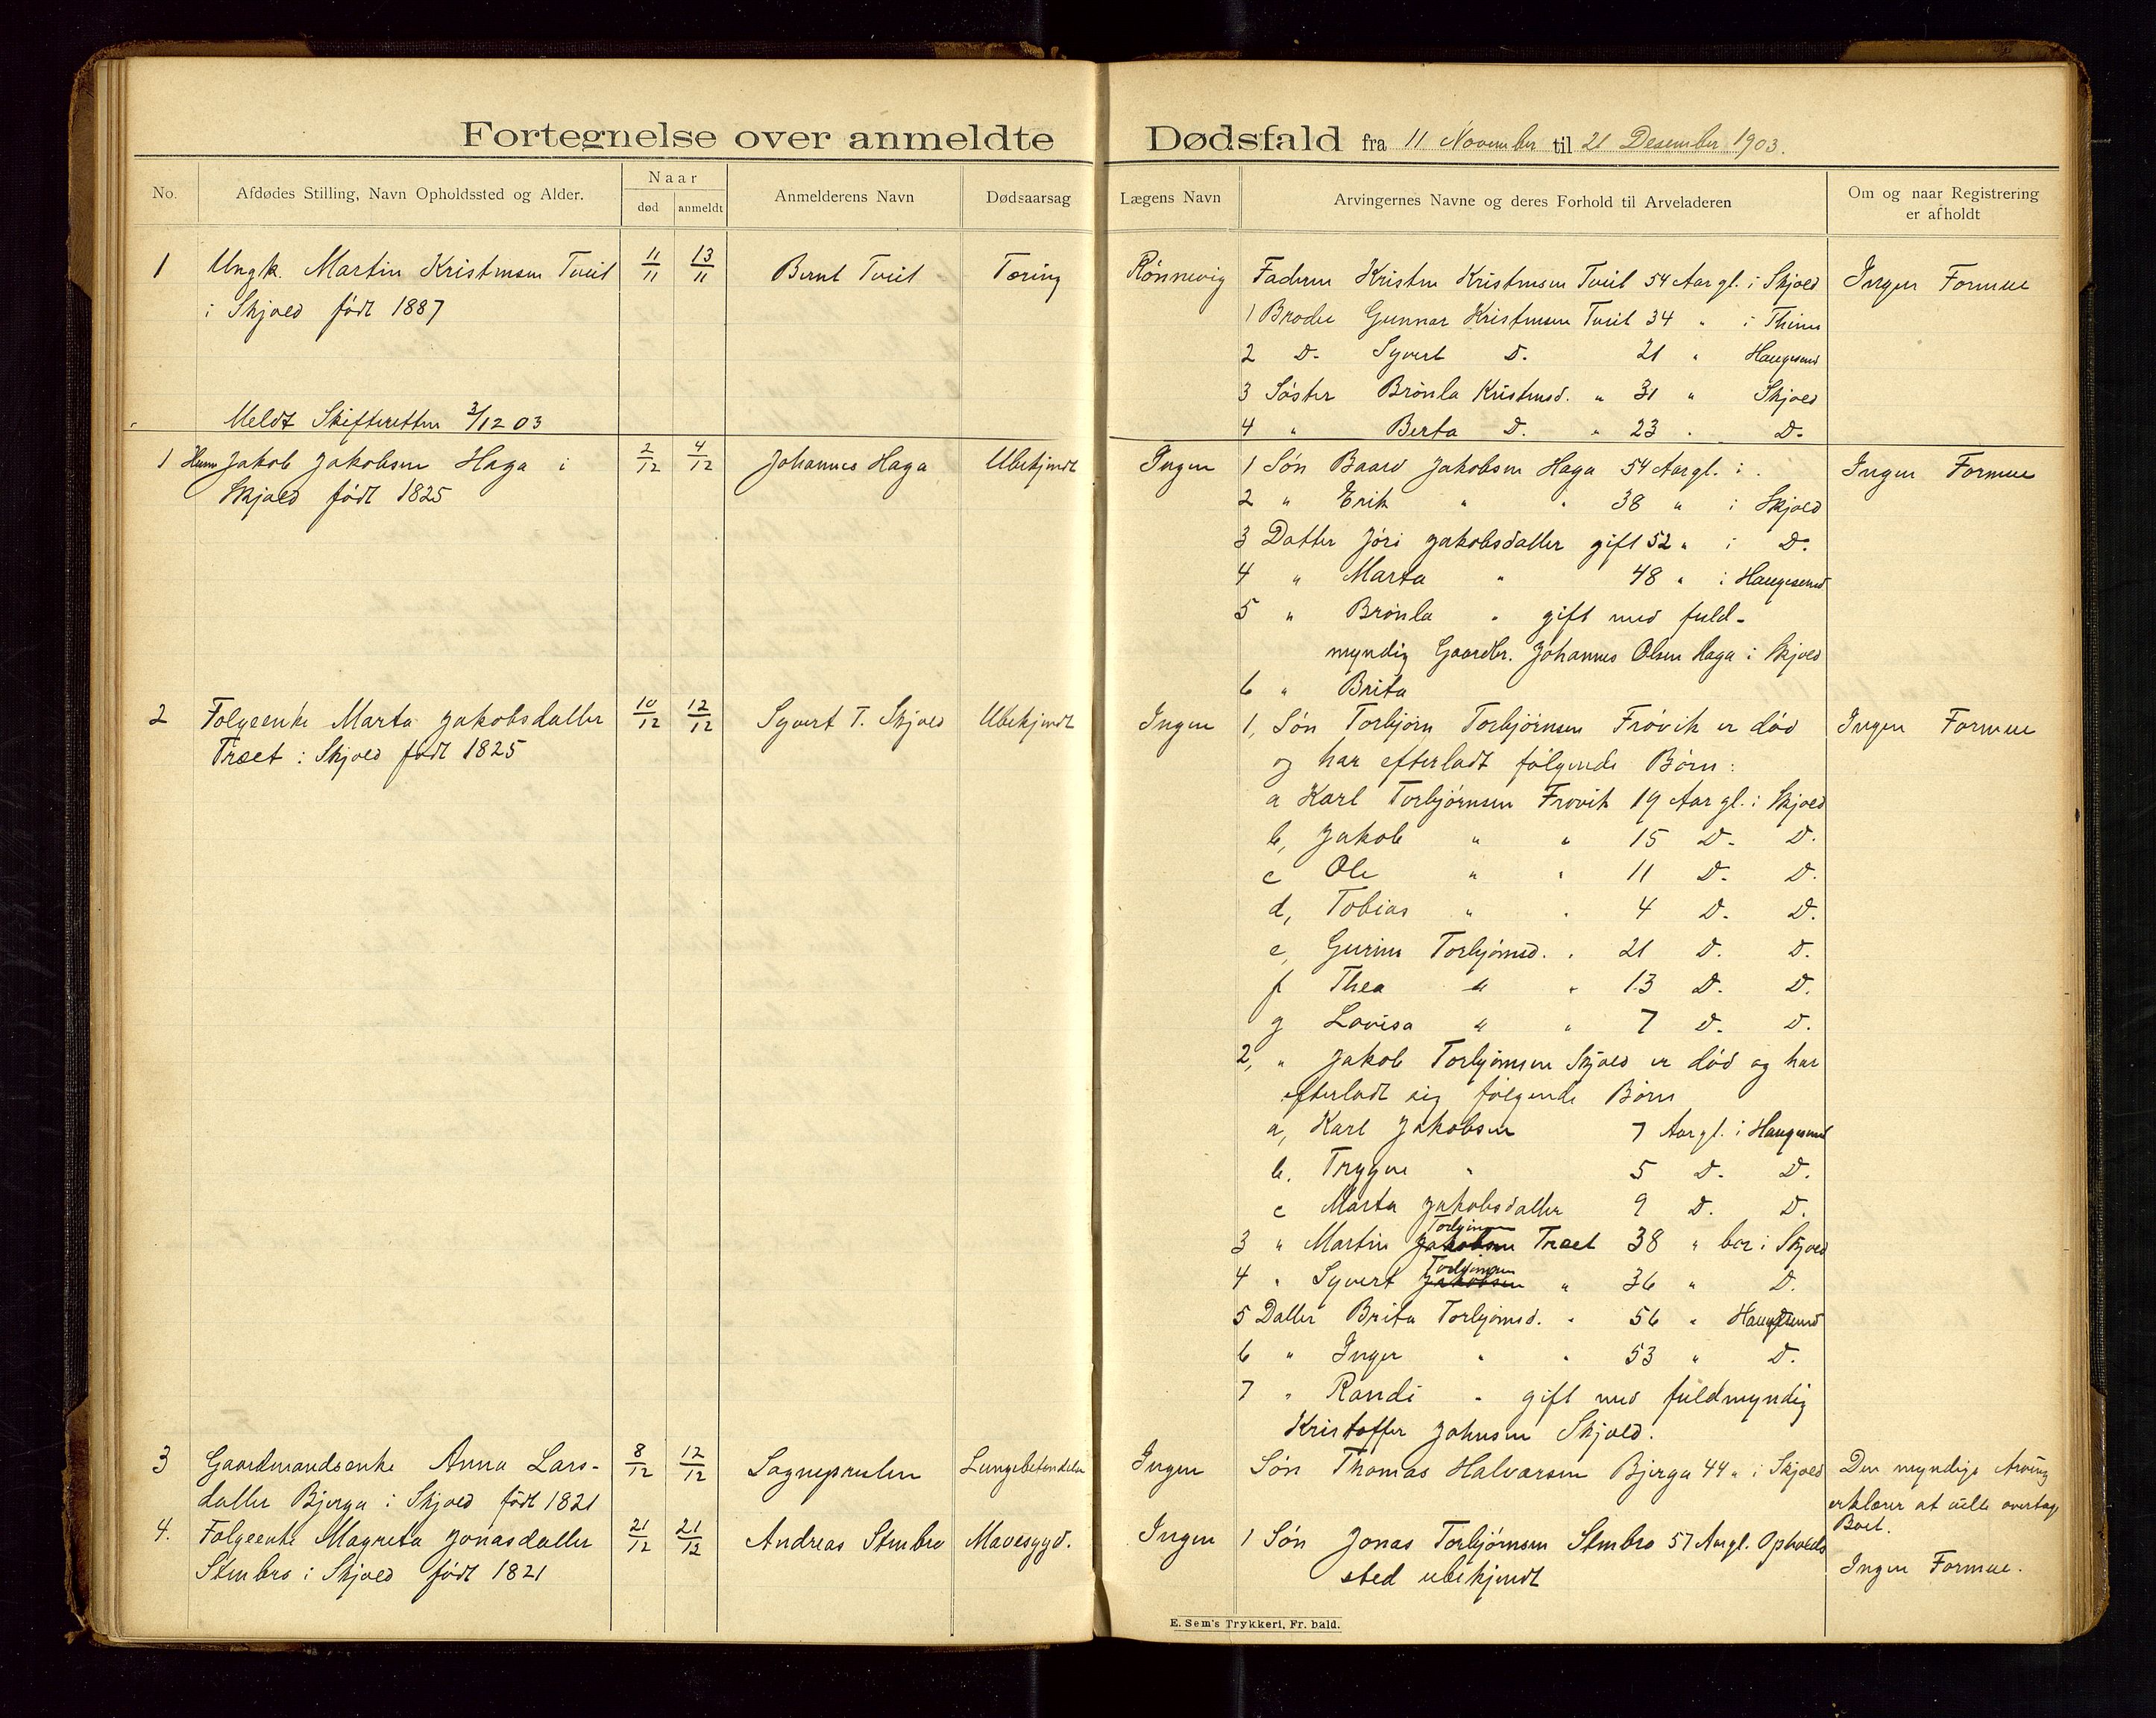 Fortegnelse over anmeldte Dødsfald fra 11 November til 21 Desember 1903.
No.
Afdødes Stilling, Navn Opholdssted og Alder.
Naar
død
anmeldt
Anmelderens Navn
Dødsaarsag
Lægens Navn
Arvingernes Navne og deres Forhold til Arveladeren
Om og naar Registrering
er afholdt
1 Ungk. Martin Kristensen Tveit 11/11 13/11 Bernt Tveit Tæring Rönnevig Faderen Kristen Kristensen Tveit 54 Aar gl. i Skjold Ingen Formue
i Skjold født 1887
1 Broder Gunnar Kristensen Tveit 34 " i
2 D. Syvert D. 21 " Haugesund
3 Søster Brönla Kristensd. " 31 " Skjold
Meldt Skifteretten 3/12 03
4 " Berta D. " 23 " D.
1 Jakob Jakobsen Haga i 2/12 4/12 Johannes Haga Ubekjendt Ingen 1 Søn Baard Jakobsen Haga 54 Aar gl. i Ingen Formue
Skjold født 1825
2 " Erik " " 38 " i Skjold
3 Datter Jöri Jakobsdatter gift 52 " i D.
4 " Marta " 48 " i Haugesund
5 " Brönla " gift med fuld-
myndig Gaardbr. Johannes Olsen Haga i Skjold
6 " Brita
2 Folgeenke Marta Jakobsdatter 10/12 12/12 Syvert T. Skjold Ubekjendt Ingen 1, Søn Torbjørn Torbjørnsen Frövik er død Ingen Formue
Træet i Skjold født 1825
og har efterladt følgende Børn:
a Karl Torbjørnsen Frövik 19 Aar gl. i Skjold
b, Jakob " " 15 D. D.
c Ole " " 11 D. D.
d, Tobias " " 4 D. D.
e, Gurine Torbjørnsd. " 21 D. D.
f Thea " " 13 D. D.
g Lovisa " " 7 D. D.
2, " Jakob Torbjørnsen Skjold er død og har
efterladt sig følgende Børn
a, Karl Jakobsen 7 Aar gl. i Haugesund
b. Trygve " 5 D. D.
c Marta Jakobsdatter 9 D. D.
Torbjørnsen
3 " Martin Jakobsen Træet 38 " bor i Skjold
Torbjørnsen
4 " Syvert Jakobsen " 36 " D.
5 Datter Brita Torbjørnsd. " 56 " Haugesund
6 " Inger " " 53 " D.
7 " Randi " gift med fuldmyndig
Kristoffer Johnsen Skjold.
3 Gaardmandsenke Anna Lars- 8/12 12/12 Sognepresten Lungebetændelse Ingen Søn Thomas Halvorsen Bjerga 44 " i Skjold Den myndige Arving
datter Bjerga i Skjold født 1821
erklærer at ville overtage
Boet.
4. Folgeenke Magreta Jonasdatter 21/12 21/12 Andreas Stenbro Mavesygd. Ingen 1 Søn Jonas Torbjørnsen Stenbro 57 Aar gl. Opholds
Stenbro i Skjold født 1821
sted ubekjendt
Ingen Formue.
E. Sem's Trykkeri, Fr. hald.